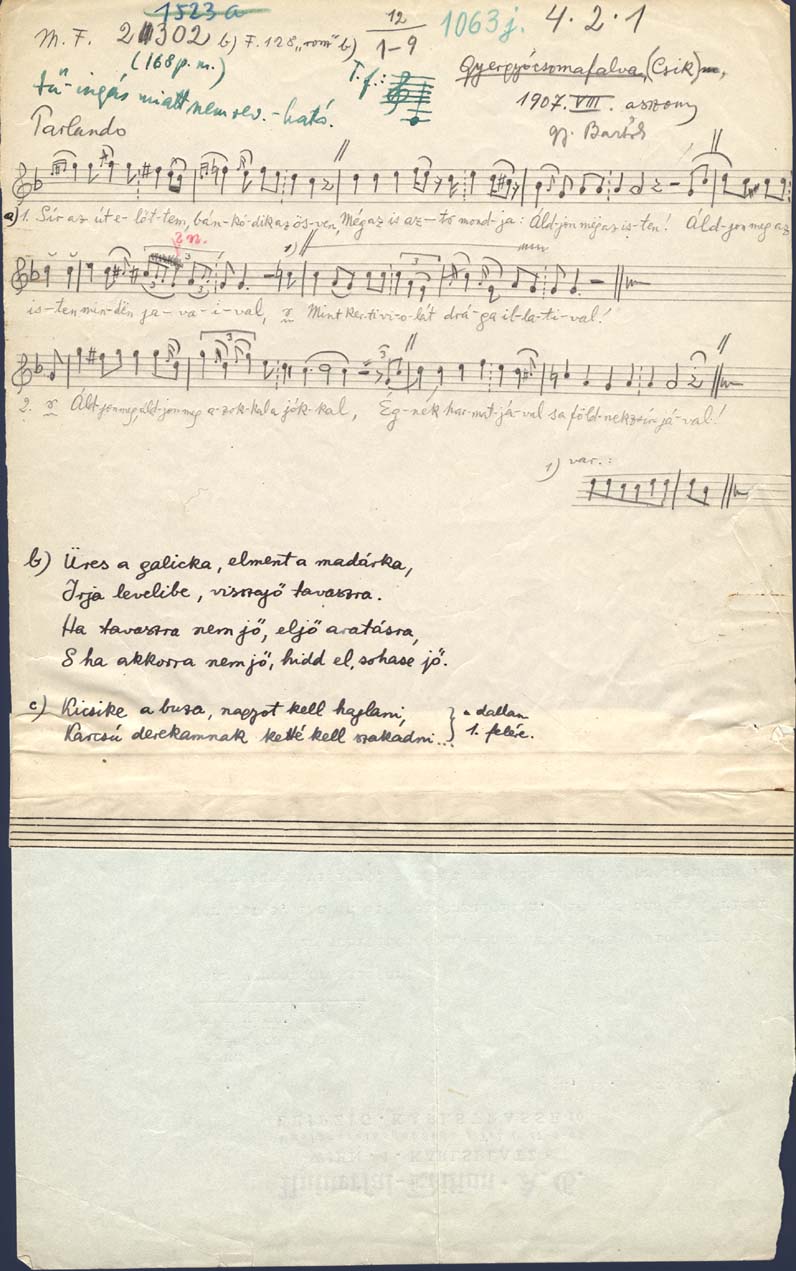 1523 a
M. F. 21302 b) F. 128 "rom" b) 12/1-9 1063 j. 4·2·1
(168 p. m.)
tű-ingás miatt nem rev.-ható.
T. f.:
Gyergyócsomafalva, (Csik) m,
1907. VIII. asszony
gy. Bartók
Parlando
a) 1. Sír az út e-lőt-tem, bán-kó-dik az ös-ven, Még az is az-tó mond-ja: Áld-jon még az is-ten! Áld-jon meg az
2 n.
1)
is-ten min-dën ja-va-i-val, Mint ker-ti vi-o-lát drá-ga il-la-ti-val!
2. Áld-jon meg, áld-jon meg a-zok-kal a jók-kal, Ég-nek har-mat-já-val s a föld-nek zsír-já-val!
1) var.:
b) Üres a galicka, elment a madárka,
Irja levelibe, visszajő tavaszra.
Ha tavaszra nem jő, eljő aratásra,
S ha akkorra nem jő, hidd el, sohase jő.
c) Kicsike a buza, nagyot kell hajlani,
Karcsú derekamnak ketté kell szakadni...
a dallam
1. felére.